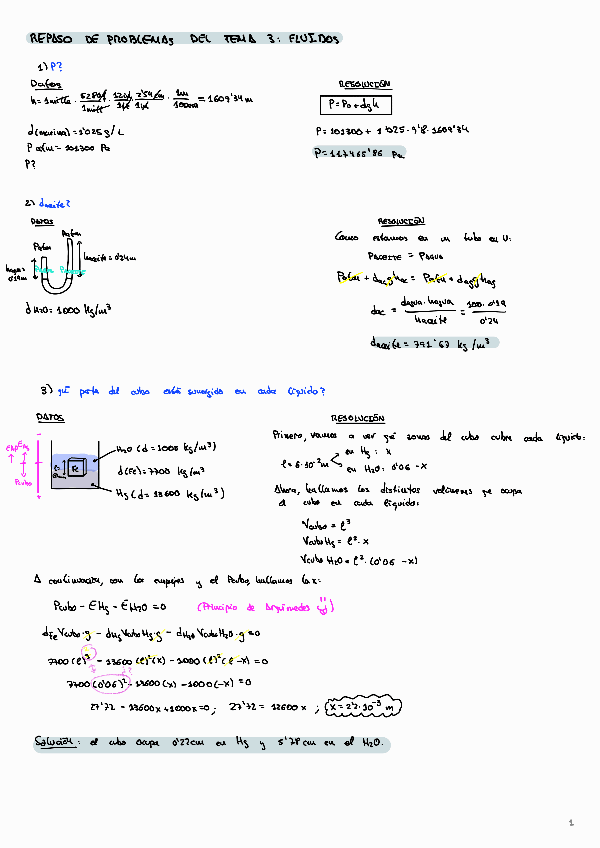 REPASO DE PROBLEMAS DEL TEMA 3: FLUIDOS
1) P?
Datos
h = 1 milla · 5280ft/1milla · 12in/1ft · 2'54cm/1in · 1m/100cm = 1609'34 m
d(marina) = 1'025 g/L
P atm = 101300 Pa
P?
RESOLUCIÓN
P = Po + dgh
P = 101300 + 1'025 · 9'8 · 1609'34
P = 117465'86 Pa
2) daceite?
DATOS
Patm
Patm
haceite = 0'24m
hagua = 0'19m
dH2O = 1000 Kg/m³
RESOLUCIÓN
Como estamos en un tubo en U:
PACEITE = PAGUA
Patm + dac g hac = Patm + dag g hag
dac = dagua · hagua / haceite = 100 · 0'19 / 0'24
daceite = 791'67 kg/m³
3) ¿qué parte del cubo está sumergida en cada líquido?
DATOS
Pcubo
Fe
H2O (d = 1000 kg/m³)
d(Fe) = 7700 kg/m³
Hg (d = 13600 kg/m³)
RESOLUCIÓN
Primero, vamos a ver qué zonas del cubo cubre cada líquido:
l = 6·10⁻²m
en Hg : x
en H2O: 0'06 - x
Ahora, hallamos los distintos volúmenes que ocupa
el cubo en cada líquido:
Vcubo = l³
Vcubo Hg = l² · x
Vcubo H2O = l² · (0'06 - x)
A continuación, con los empujes y el Pcubo, hallamos la x:
Pcubo - EHg - EH2O = 0
(Principio de Arquímedes)
dFe Vcubo · g - dHg Vcubo Hg · g - dH2O Vcubo H2O · g = 0
7700 (l)³ - 13600 (l)² (x) - 1000 (l)² (l - x) = 0
7700 (0'06)² - 13600 (x) - 1000 (-x) = 0
27'72 - 13600x + 1000x = 0; 27'72 = 12600x ; x = 2'2 · 10⁻³ m
Solución: el cubo ocupa 0'22cm en Hg y 5'78 cm en el H2O.
1